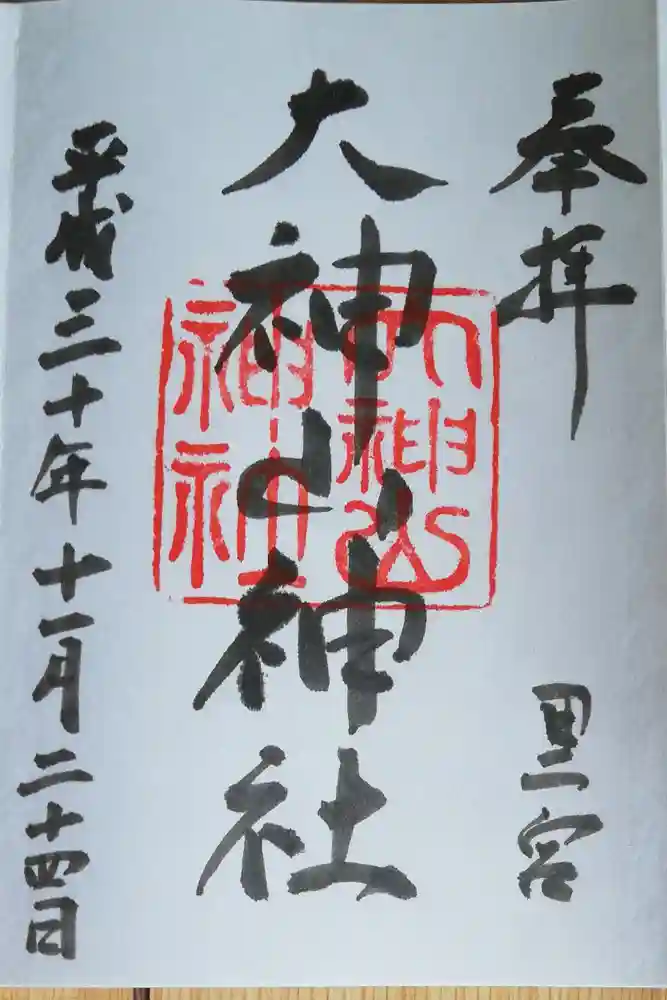 奉拝
里宮
大神山神社
大神山
神社
平成三十年十一月二十四日